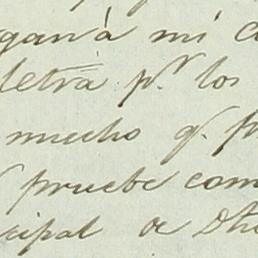 gan á mi
letra p.r los
mucho q.
pruebe com
cipal de Dho